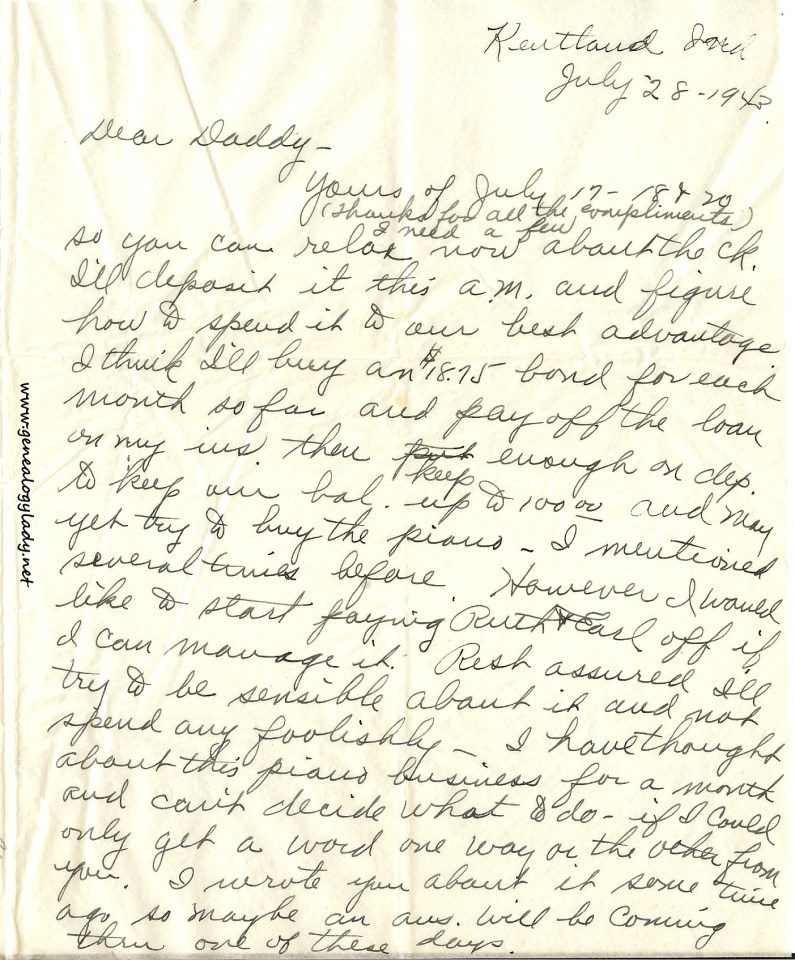 Kentland Ind
July 28-1943.
Dear Daddy-
Yours of July 17- 18 & 20
(Thanks for all the compliments)
I need a few
so you can relax now about the ck.
I'll deposit it this a.m. and figure
how to spend it to our best advantage.
I think I'll buy an $18.75 bond for each
month so far and pay off the loan
on my ins then put enough on dep.
keep
to keep our bal. up to 100 00 and may
yet try to buy the piano - I mentioned
several times before. However I would
like to start paying Ruth & Earl off if
I can manage it. Rest assured I'll
try to be sensible about it and not
spend any foolishly - I have thought
about this piano business for a month
and can't decide what to do - if I could
only get a word one way or the other from
you. I wrote you about it some time
ago so maybe an ans. will be coming
thru one of these days.
www.genealogylady.net